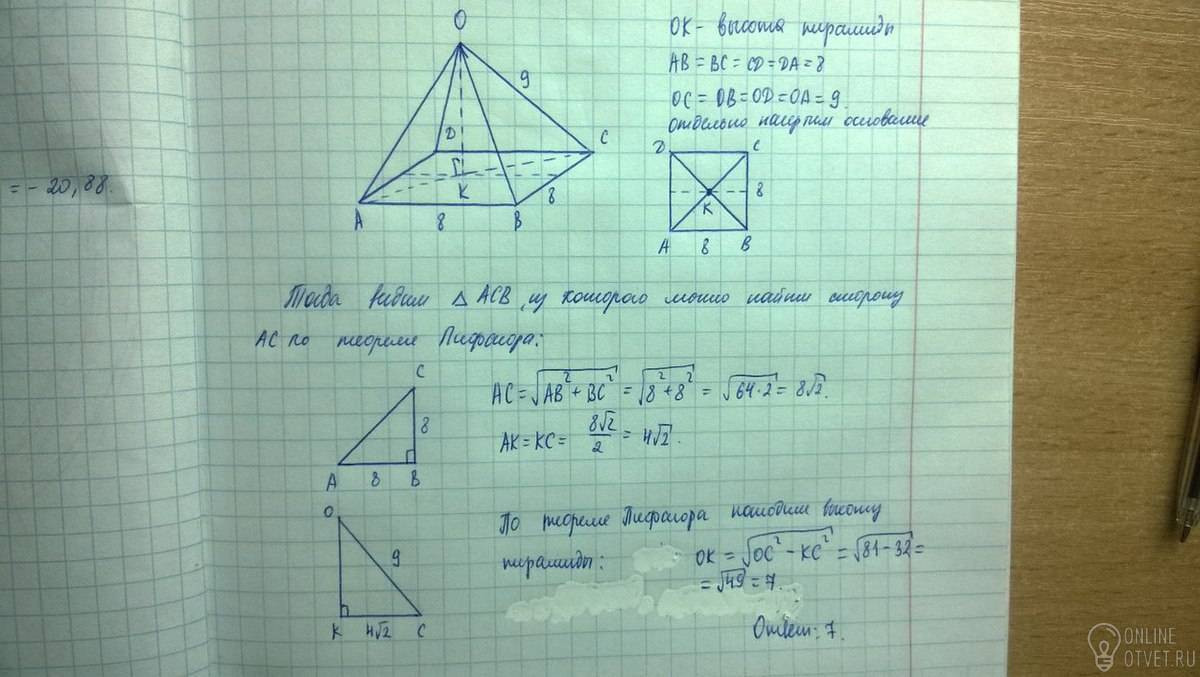 O
9
D
C
Г
K
8
A
8
B
OK - высота пирамиды
AB = BC = CD = DA = 8
OC = OB = OD = OA = 9.
отдельно начертим основание
D C
8
K
A 8 B
= - 20,88.
Тогда видим △ ACB, из которого можно найти сторону
AC по теореме Пифагора:
C
8
A 8 B
AC = √(AB² + BC²) = √(8² + 8²) = √(64·2) = 8√2.
AK = KC = 8√2/2 = 4√2.
O
9
K 4√2 C
По теореме Пифагора находим высоту
пирамиды: OK = √(OC² - KC²) = √(81 - 32) =
= √49 = 7.
Ответ: 7.
ONLINE
OTVET.RU